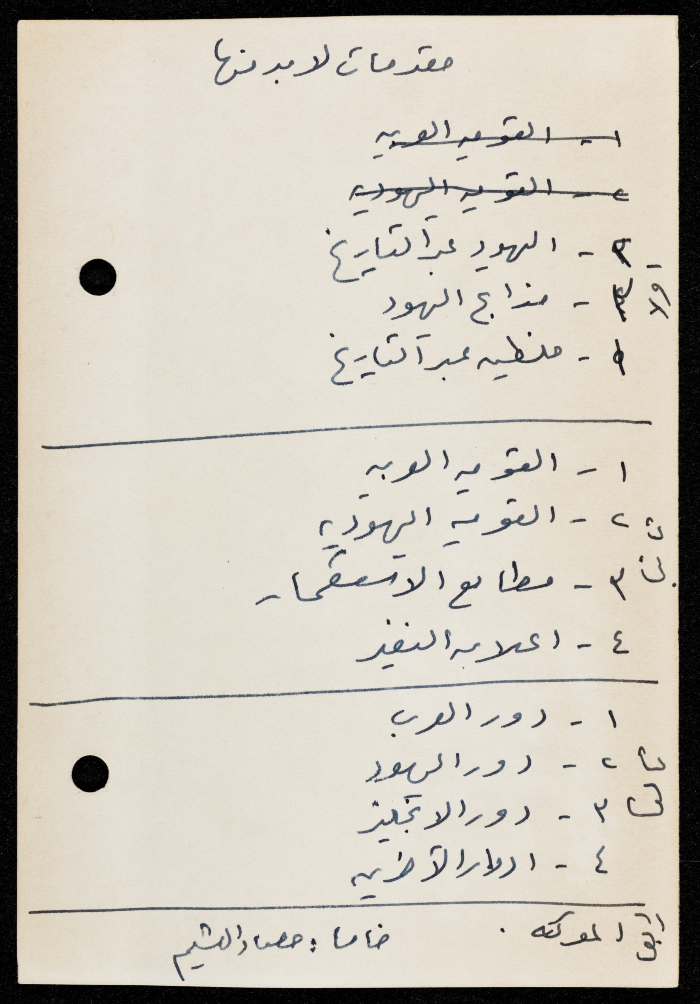 مقدمات لا بد منها
١ - القوميه العربيه
٢ - القوميه اليهوديه
اولا
٢ - اليهود عبر التاريخ
٣ - مذابح اليهود
فلسطين عبر التاريخ
ثانيا
١ - القوميه العربيه
٢ - القوميه اليهوديه
٣ - مطامع الاستعمار
٤ - اعلان النفير
ثالثا
١ - دور العرب
٢ - دور اليهود
٣ - دور الانجليز
٤ - ادوار الآخرين
رابعا المعركه .
خامسا : حصاد الهشيم